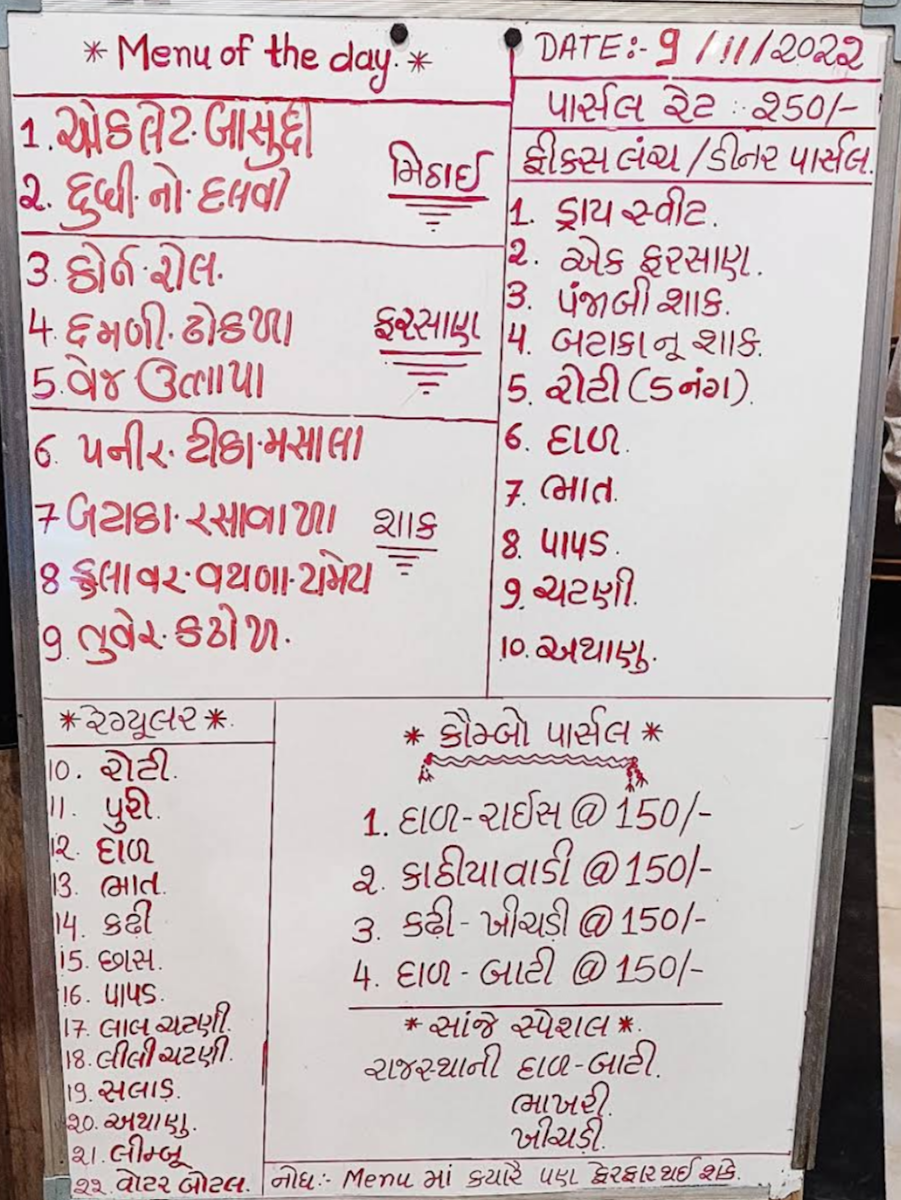 * Menu of the day. *
1. એકલેટ બાસુંદી
2. દુધી નો હલવો
મિઠાઈ
3. કોર્ન રોલ.
4. ઇમળી ઢોકળા
5. વેજ ઉત્તાપા
ફરસાણ
6. પનીર ટીકા મસાલા
7 બટાકા રસાવાળા
8 ફલાવર વટાણા ટામેટા
9. તુવેર કઠોળ.
શાક
DATE:- 9/11/2022
પાર્સલ રેટ :- ૨50/-
ફીકસ લંચ / ડીનર પાર્સલ.
1. ડ્રાય સ્વીટ.
૨. એક ફરસાણ.
3. પંજાબી શાક.
4. બટાકા નૂ શાક.
5. રોટી (5 નંગ).
6. દાળ.
7. ભાત.
8. પાપડ.
9. ચટણી.
10. અથાણુ.
* રેગ્યૂલર *.
10. રોટી.
11. પુરી.
1૨. દાળ
13. ભાત.
14. કઢી
15. છાસ.
16. પાપડ.
17. લાલ ચટણી.
18. લીલી ચટણી.
19. સલાડ.
૨0. અથાણુ.
૨1. લીમ્બૂ
૨૨. વોટર બોટલ.
* કૌમ્બો પાર્સલ *
1. દાળ-રાઈસ @ 150/-
૨. કાઠીયાવાડી @ 150/-
3. કઢી - ખીચડી @ 150/-
4. દાળ - બાટી @ 150/-
* સાંજે સ્પેશલ *.
રાજસ્થાની દાળ-બાટી.
ભાખરી.
ખીચડી.
નોધ:- Menu માં કયારે પણ ફેરફાર થઈ શકે.